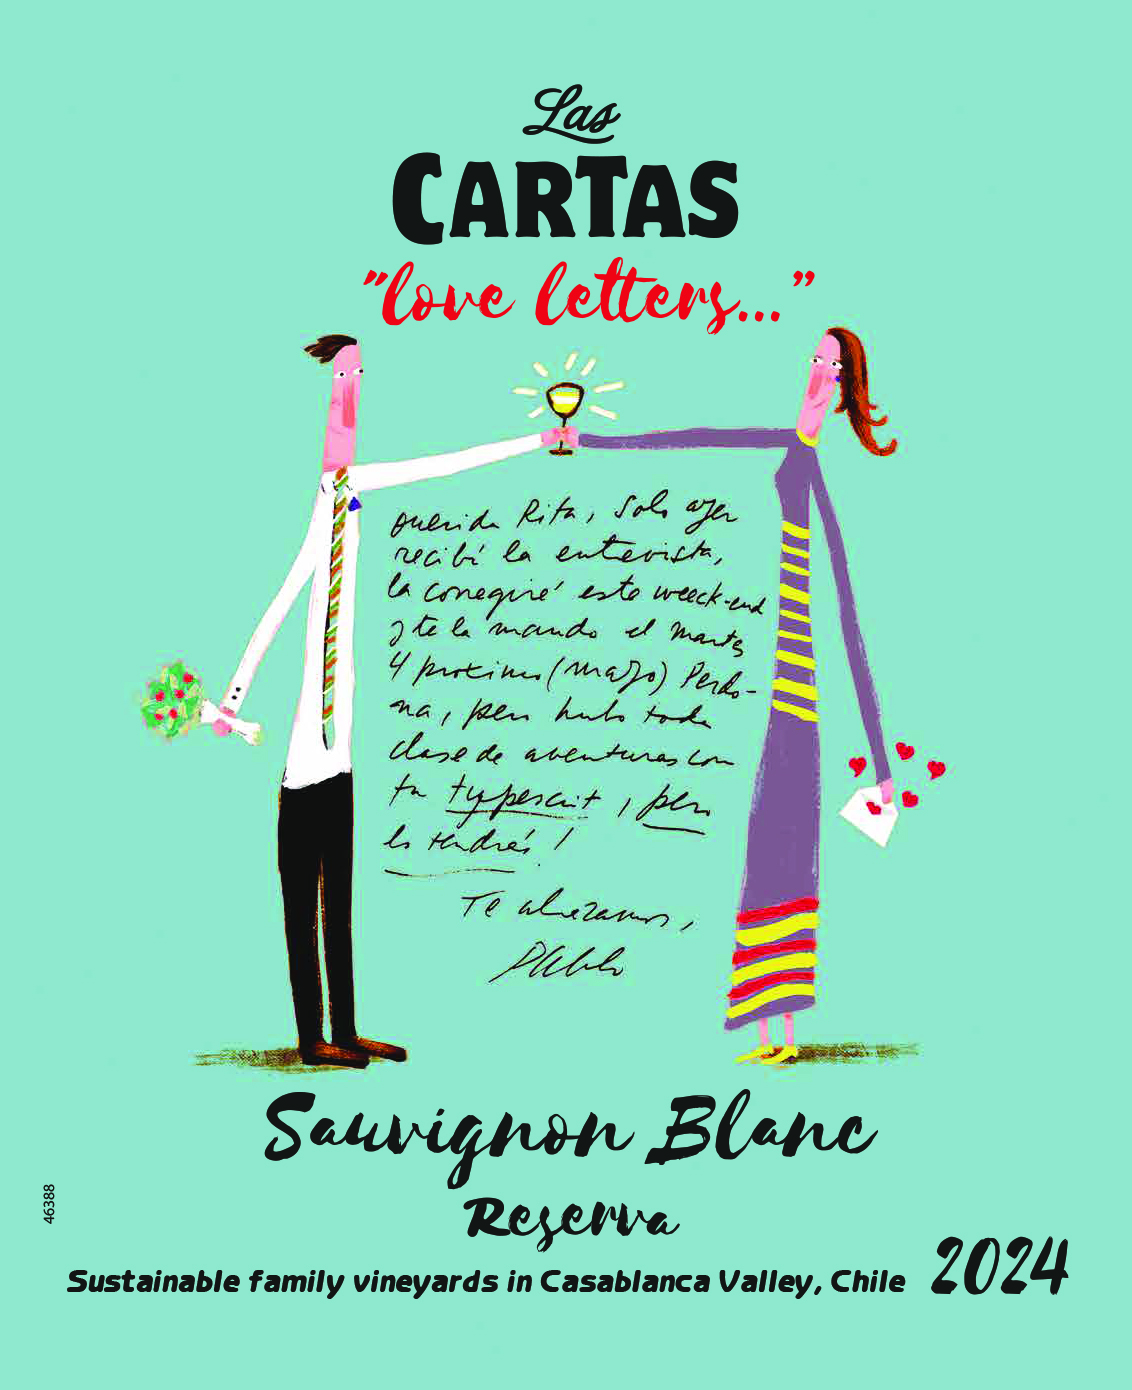 Las
CARTAS
"love letters..."
Querida Rita, Solo ayer
recibí la entrevista,
la corregiré este weeck-end
y te la mando el martes
4 proximo (mayo) Perdo-
na, pero hubo toda
clase de aventuras con
tu typescrit, pero
lo tendrás!
Te abrazamos,
Pablo
Sauvignon Blanc
Reserva
Sustainable family vineyards in Casablanca Valley, Chile 2024
46388